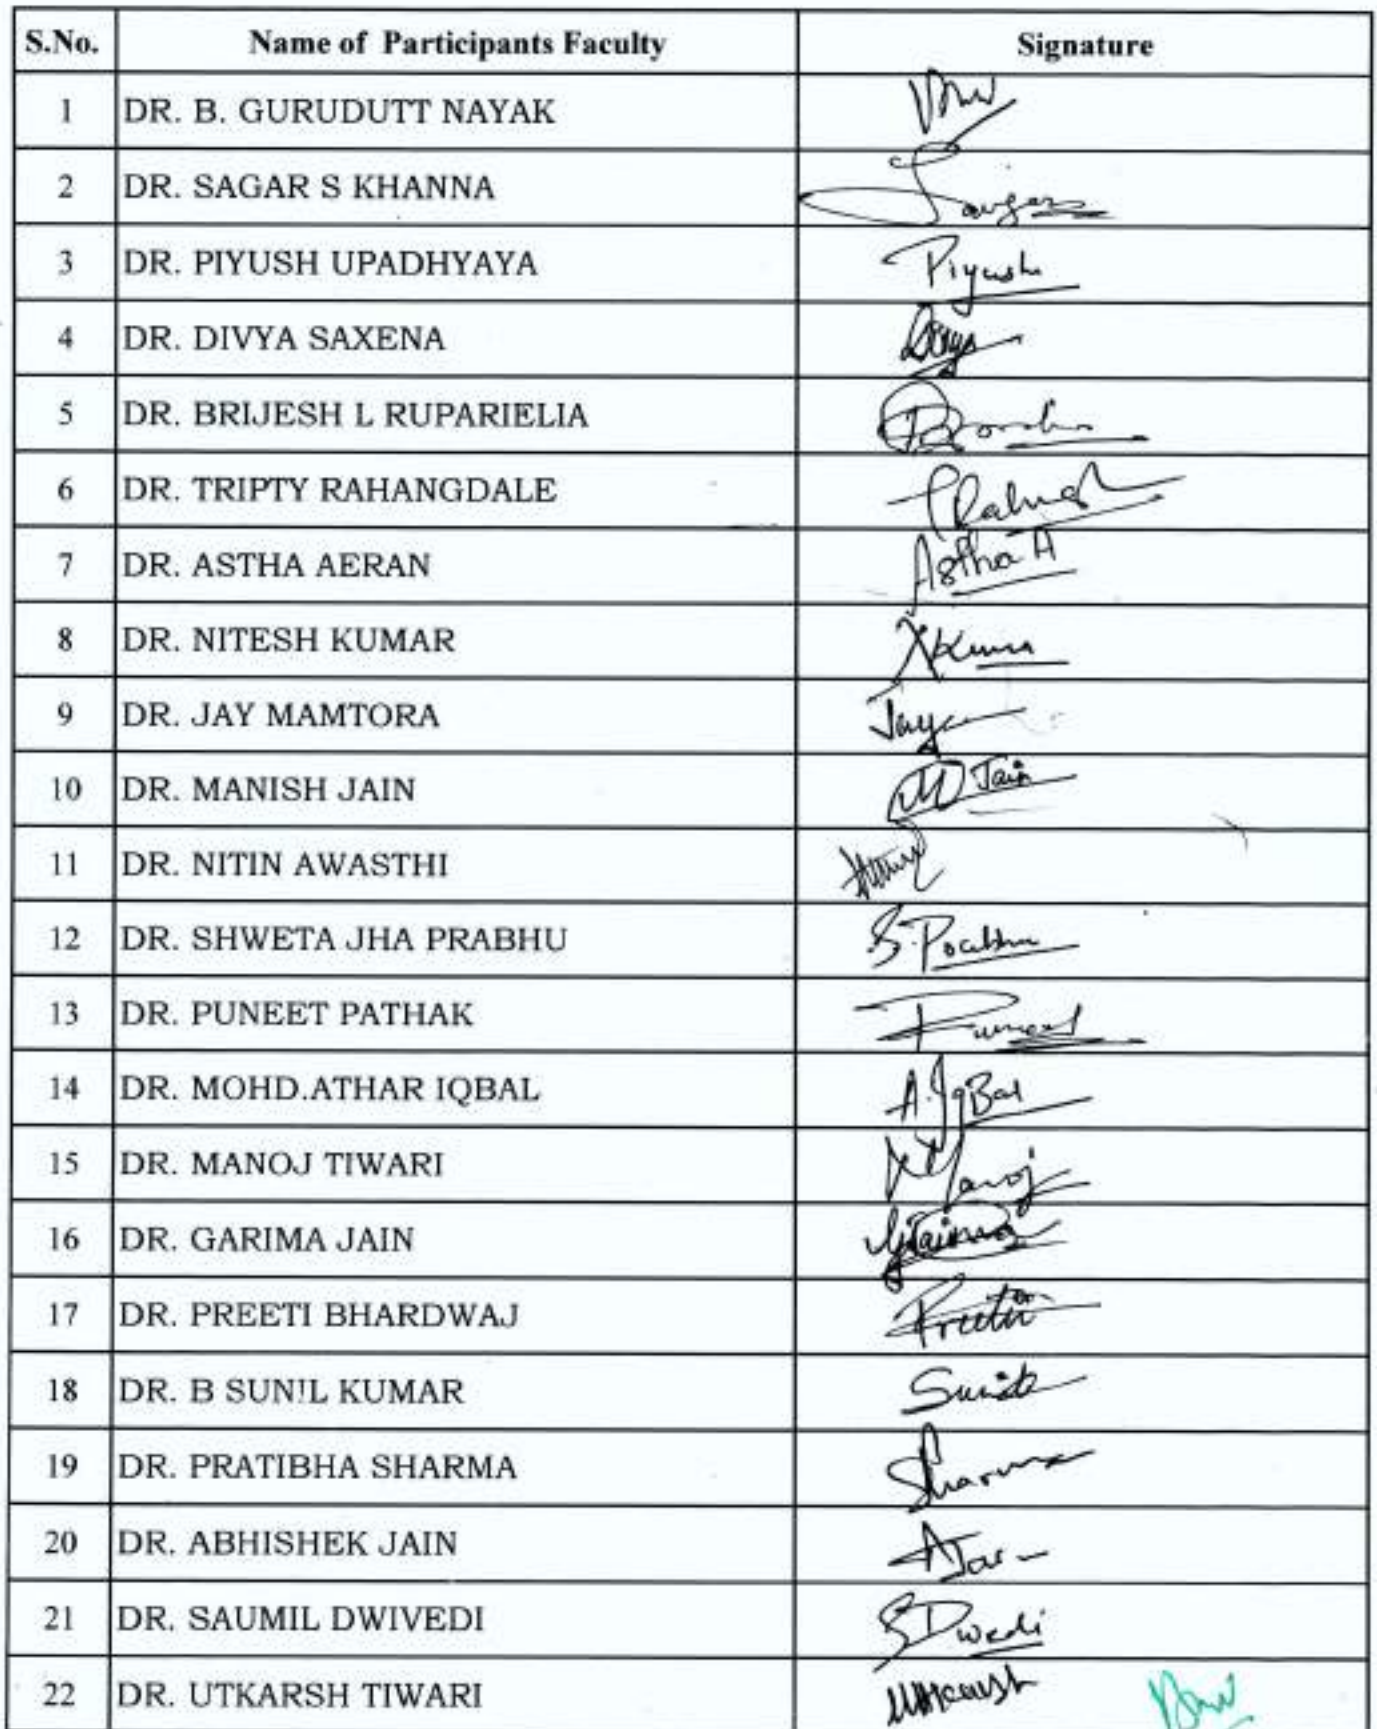 S.No. Name of Participants Faculty Signature
1 DR. B. GURUDUTT NAYAK
2 DR. SAGAR S KHANNA
3 DR. PIYUSH UPADHYAYA Piyush
4 DR. DIVYA SAXENA
5 DR. BRIJESH L RUPARIELIA
6 DR. TRIPTY RAHANGDALE
7 DR. ASTHA AERAN Astha A
8 DR. NITESH KUMAR
9 DR. JAY MAMTORA Jay
10 DR. MANISH JAIN Jain
11 DR. NITIN AWASTHI
12 DR. SHWETA JHA PRABHU S. Prabhu
13 DR. PUNEET PATHAK Puneet
14 DR. MOHD.ATHAR IQBAL A. IqBal
15 DR. MANOJ TIWARI Manoj
16 DR. GARIMA JAIN
17 DR. PREETI BHARDWAJ Preeti
18 DR. B SUNIL KUMAR
19 DR. PRATIBHA SHARMA Sharma
20 DR. ABHISHEK JAIN
21 DR. SAUMIL DWIVEDI
22 DR. UTKARSH TIWARI